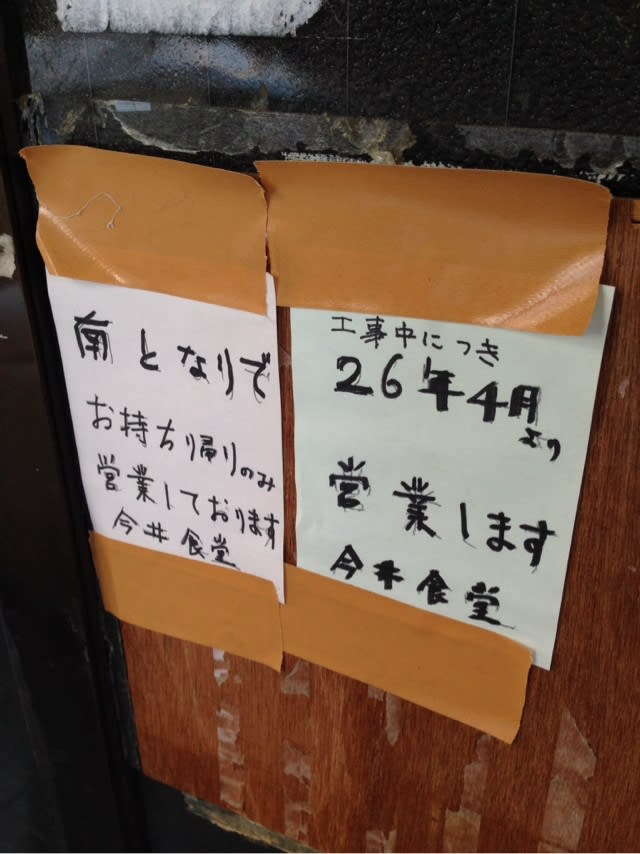 南となりで
お持ち帰りのみ
営業しております
今井食堂
工事中につき
26年4月
より
営業します
今井食堂